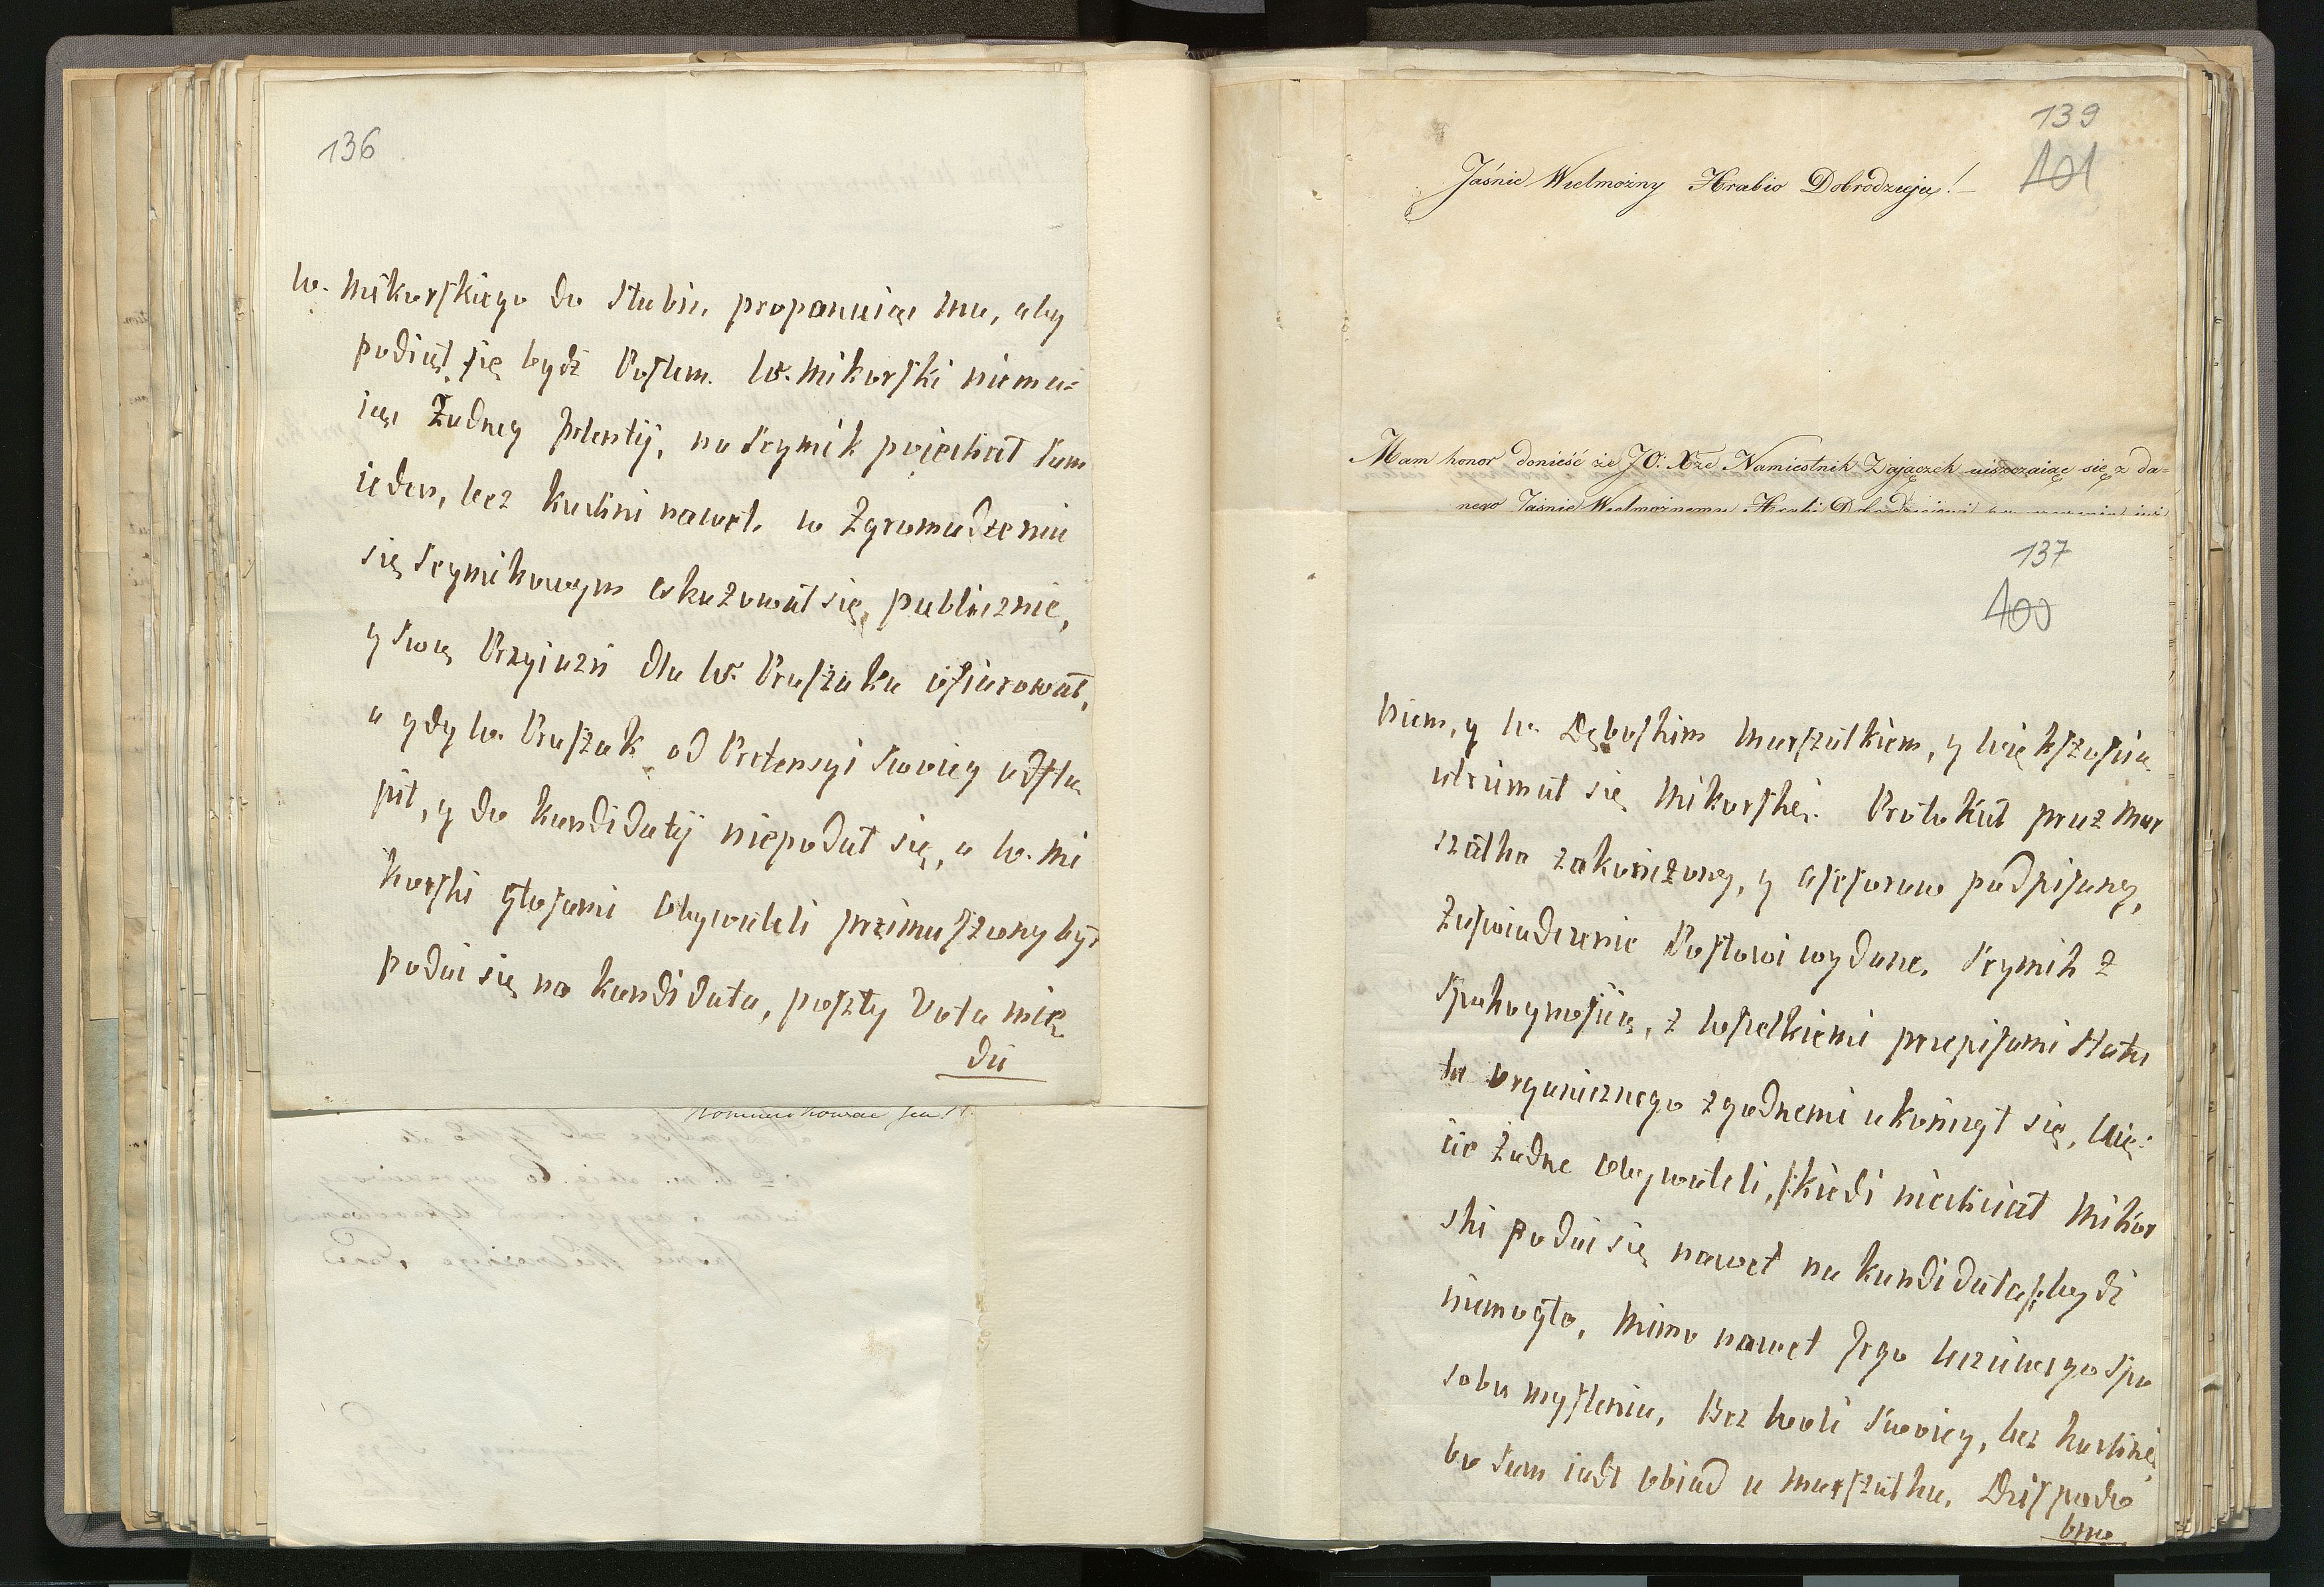 136
W. Mikorskiego do Słubic, proponuiąc mu, aby
podiął się bydź Posłem. W. Mikorski niema=
iąc Żadney pretensyi, na Seymik poiechał sam
ieden, bez kuchni nawet. w Zgromadzeniu
się Seymikowym exkuzował się, publicznie,
y swą Przyiaźń dla W. Pruszaka ofiarował,
a gdy W. Pruszak od Pretensyi swoiey odstą
pił, y do kandidaty niepodał się, a W. Mi
korski głosami obywateli przimuszony był
podać się na kandidata, poszły Vota mię
dzi
139
101
Jaśnie Wielmożny Hrabio Dobrodzieju!
Mam honor donieść że JO: Xże Namiestnik Zajączek uiszczaiąc się z da=
nego Jaśnie Wielmożnemu Hrabi Dobrodziejowi
137
100
niem, y W. Dębowskim Marszałkiem, y większością
utrzimał się Mikorski. Protokuł przez Mar
szałka zakończony, y assesorow podpisany,
Zaświadczenie Posłowi wydane. Seymik z
Spokoynością, z wszelkiemi przepisami Statu
tu organicznego zgodnemi ukończył się. Uię:
cie Żadne obywateli, /:kiedi niechciał Mikor
ski podać się nawet na kandidata:/ bydź
niemogło, mimo nawet Jego uczciwego spo
sobu myślenia, Bez woli swoiey, bez kuchni,
bo sam iadł obiad u Marszałka. Dziś podo
bno